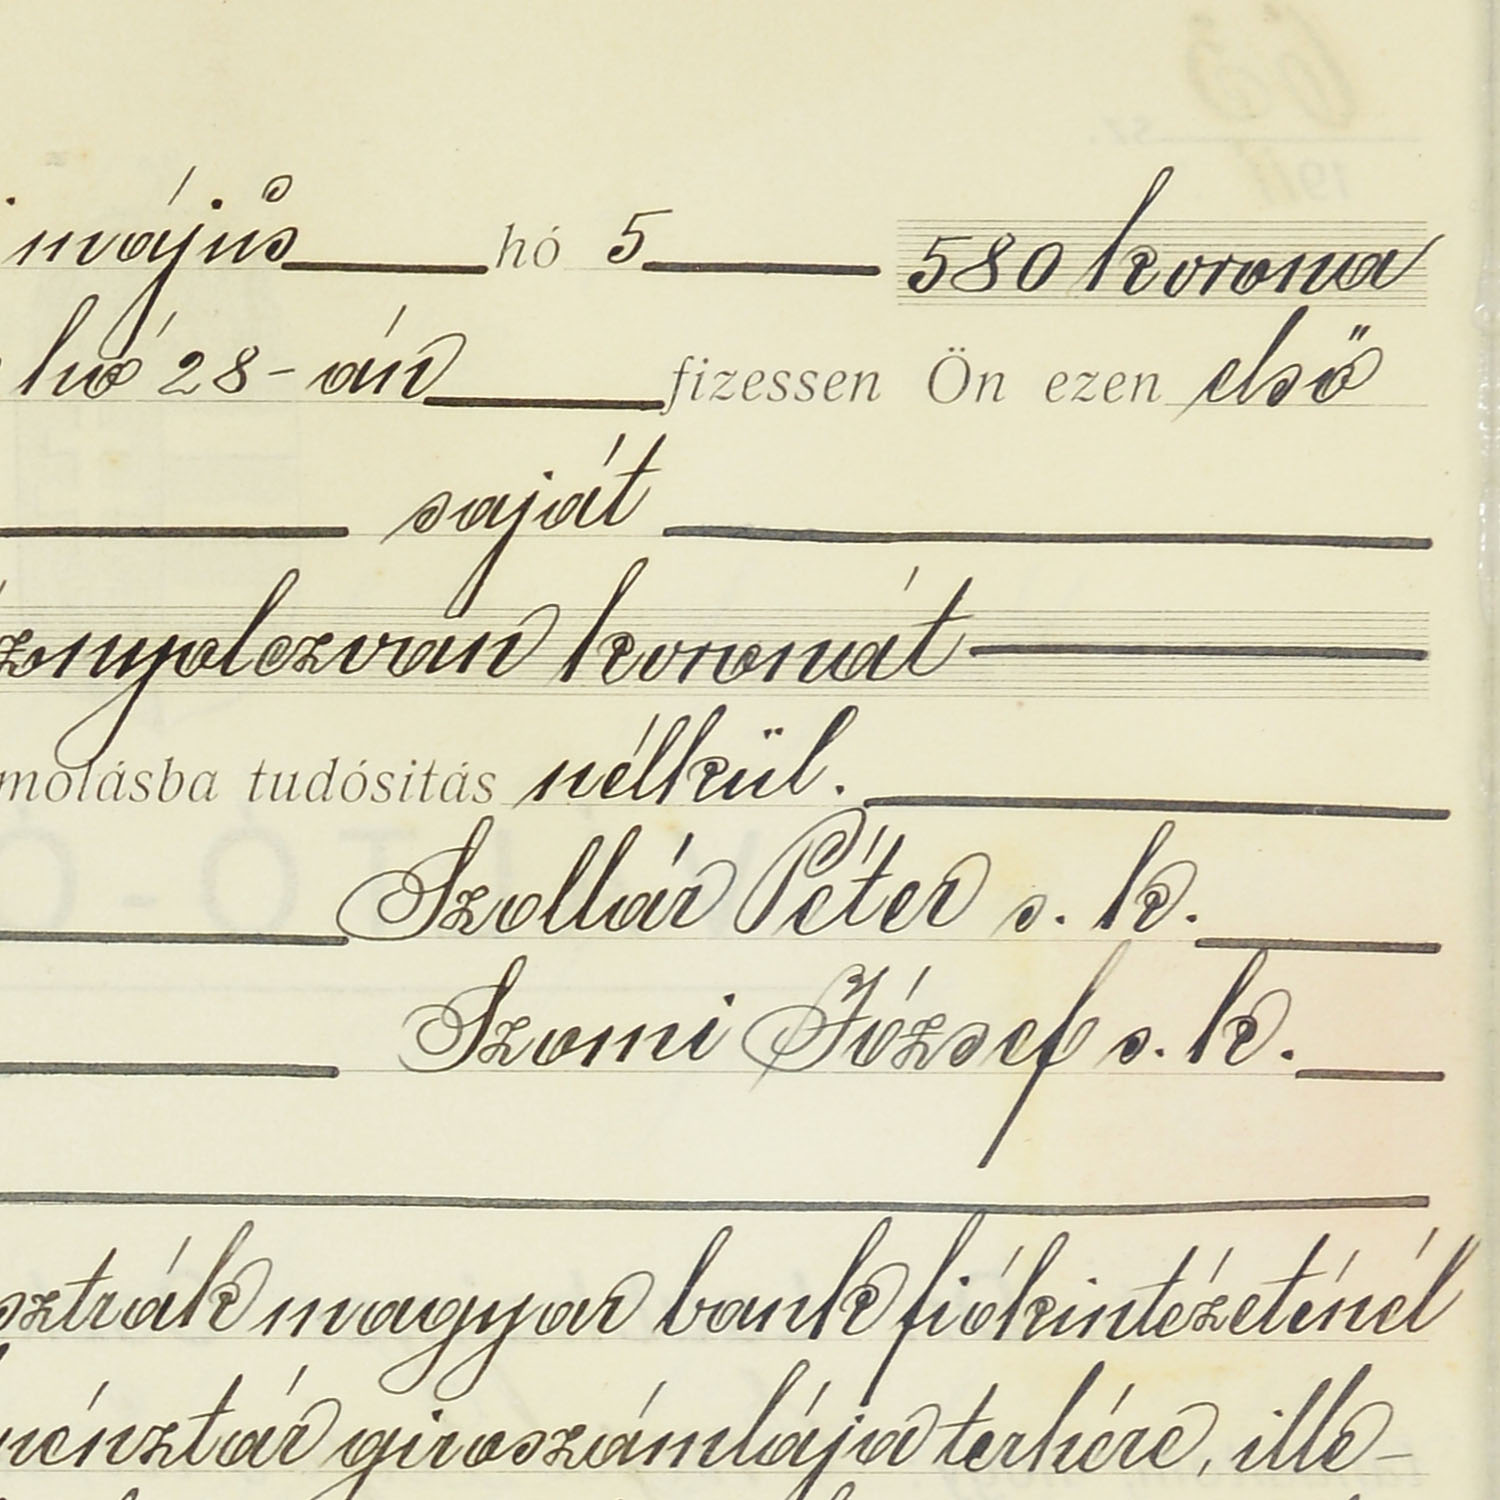 május hó 5 580 korona
hó 28-án fizessen Ön ezen első
saját
znyolczvan koronát
molásba tudósitás nélkül.
Szollár Péter s. k.
Szomi József s. k.
sztrák magyar bank fiókintézeténél
énztár giroszámlája terhére, ille-